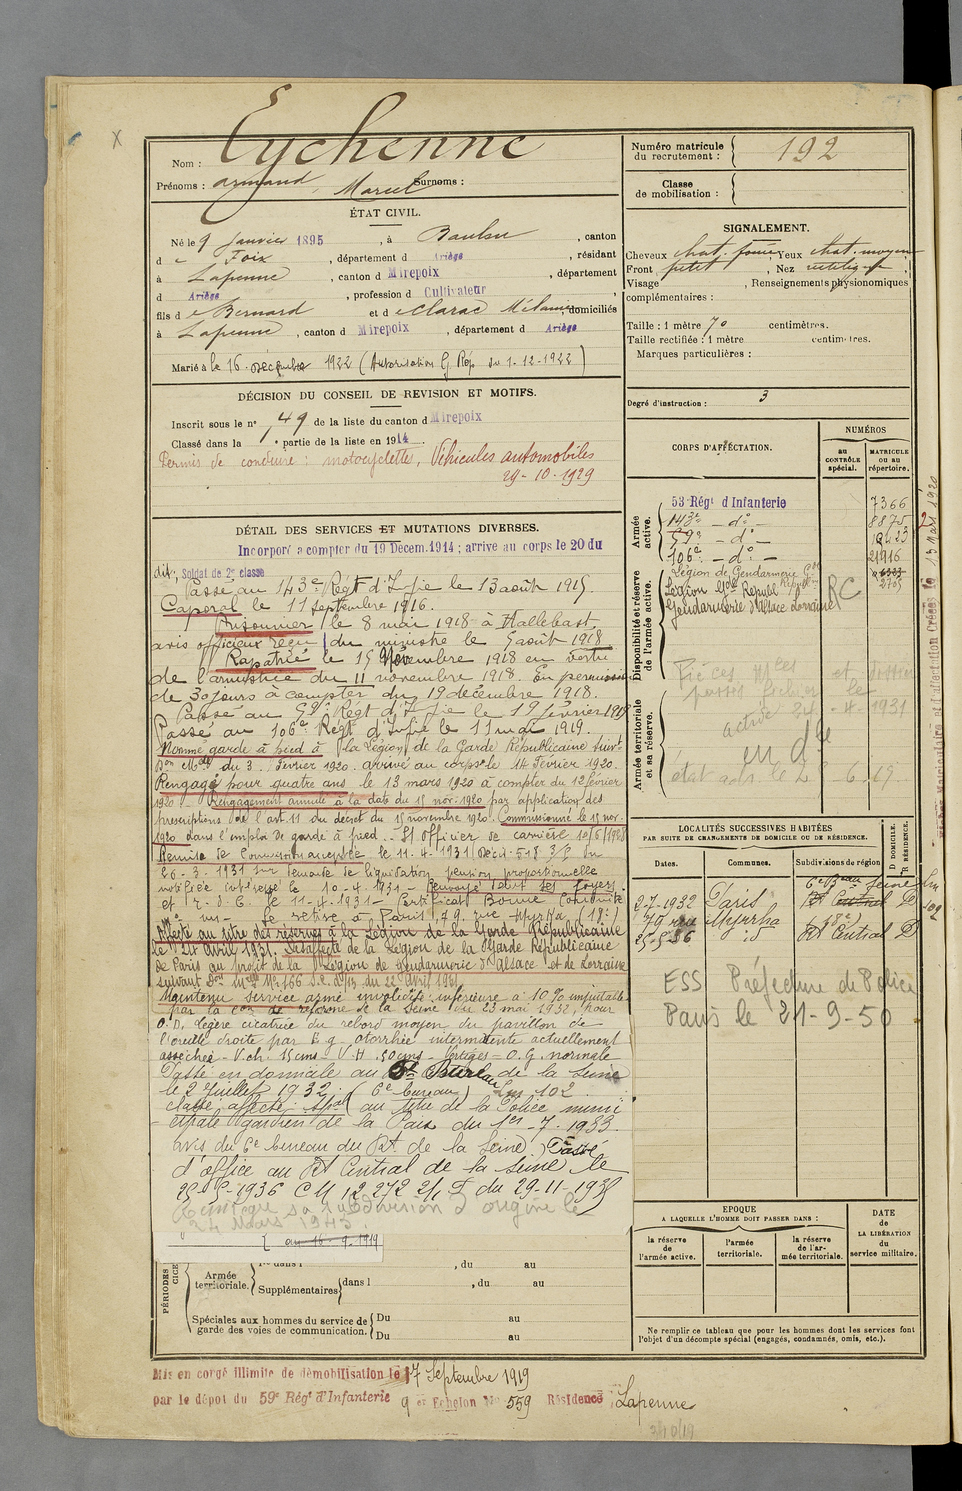 Eychenne
Nom :
Prénoms : armand, Marcel Surnoms :
ÉTAT CIVIL.
Né le 9 Janvier 1895, à Baulou, canton
d e Foix, département d Ariège, résidant
à Lapenne, canton d Mirepoix, département
d Ariège, profession d Cultivateur
fils de Bernard et de Clarac Mélanie, domiciliés
à Lapenne, canton d Mirepoix, département d Ariège
Marié à le 16 décembre 1922 (Autorisation G. Rép. du 1-12-1922)
DÉCISION DU CONSEIL DE REVISION ET MOTIFS.
Inscrit sous le n° 49 de la liste du canton d Mirepoix
Classé dans la 1e partie de la liste en 1914.
Permis de conduire : motocyclettes, Véhicules automobiles
29-10-1929
DÉTAIL DES SERVICES ET MUTATIONS DIVERSES.
Incorporé à compter du 19 Décem. 1914 ; arrivé au corps le 20 du
dit, Soldat de 2e classe
Passé au 143e Régt d'Infie le 13 août 1915.
Caporal le 11 septembre 1916.
Prisonnier le 8 mai 1918 à Hallebast,
avis officieux reçu du ministre le 5 août 1918
Rapatrié le 15 Novembre 1918 en vertu
de l'armistice du 11 novembre 1918. En permission
de 30 jours à compter du 19 décembre 1918.
Passé au 59e Régt d'Infie le 19 février 1919
Passé au 106e Régt d'Infie le 11 mai 1919.
Nommé garde à pied à la Légion de la Garde Républicaine suivt
Don Mlle du 3 Février 1920. arrivé au corps le 14 Février 1920.
Rengagé pour quatre ans le 13 mars 1920 à compter du 12 février
1920. Rengagement annulé à la date du 15 nov. 1920 par application des
prescriptions de l'art. 11 du décret du 15 novembre 1920. Commissionné le 15 nov.
1920 dans l'emploi de garde à pied. S/ officier de carrière 10/6/1928
Remise de Commission acceptée le 11.4.1931 (Décis. 518 3/9 du
26.3.1931 sur demande de liquidation pension proportionnelle
notifiée intéressé le 10-4-1931 - Renvoyé dans ses foyers
et r. d. C. le 11-4-1931 - Certificat Bonne Conduite
Se retire à Paris, 79, rue Myrha (18e)
Affecté au titre des réserves à la Légion de la Garde Républicaine
le 24 Avril 1931. Désaffecté de la Légion de la Garde Républicaine
de Paris au profit de la Légion de Gendarmerie d'Alsace et de Lorraine
suivant Don Mlle No 166 du 22 avril 1931
Maintenu service armé invalidité inférieure à 10% imputable
par la con de réforme de la Seine du 23 mai 1932, pour
O.D. légère cicatrice du rebord moyen du pavillon de
l'oreille droite par E.g. otorrhée intermittente actuellement
asséchée - V.ch. 15 cms - V.H. 50 cms - Vertiges = O.G. normale
Passé en domicile au Bureau de la Seine
le 2 Juillet 1932. (6e bureau) Lm 102
classé affecté spal au titre de la Police muni
cipale gardien de la Paix du 1er-7-1933.
avis du 6e bureau du Rt. de la Seine. Passé
d'office au Rt Central de la Seine le
25-5-1936 CM 12.272 2/1 T du 29-11-1935
Réintègre sa subdivision d'origine le
24 Mars 1943.
au 16.9.1919
PÉRIODES
Armée territoriale.
dans l , du au
Supplémentaires dans l , du au
Spéciales aux hommes du service de garde des voies de communication.
Du au
Du au
Mis en congé illimité de démobilisation le 17 Septembre 1919
par le dépot du 59e Régt d'Infanterie 9 e Echelon No 559 Résidence Lapenne
Numéro matricule du recrutement : 192
Classe de mobilisation :
SIGNALEMENT.
Cheveux chat. foncé, Yeux chat. moyen
Front petit, Nez rectiligne,
Visage , Renseignements physionomiques
complémentaires :
Taille : 1 mètre 70 centimètres.
Taille rectifiée : 1 mètre centimètres.
Marques particulières :
Degré d'instruction : 3
CORPS D'AFFECTATION.
NUMÉROS
au CONTRÔLE spécial.
MATRICULE ou au répertoire.
Armée active.
53 Régt d'Infanterie 7366
143e - do - 8875
59e - do -
106e - do - 21916
Disponibilité et réserve de l'armée active.
Légion de Gendarmerie
Légion Gde Républ. 2705
Gendarmerie d'Alsace Lorraine
RC
Pièces mles et dossier
passés le
24-4-1931
Armée territoriale et sa réserve.
LOCALITÉS SUCCESSIVES HABITÉES
PAR SUITE DE CHANGEMENTS DE DOMICILE OU DE RÉSIDENCE.
Dates. Communes. Subdivisions de région
D DOMICILE. R RÉSIDENCE.
2-7-1932 Paris 6e Beau Seine
79 rue Myrrha (18e)
25-5-36 id Rt Central D
ESS Préfecture de Police
Paris le 21-9-50
EPOQUE
A LAQUELLE L'HOMME DOIT PASSER DANS :
la réserve de l'armée active.
l'armée territoriale.
la réserve de l'armée territoriale.
DATE de LA LIBÉRATION du service militaire.
Ne remplir ce tableau que pour les hommes dont les services font
l'objet d'un décompte spécial (engagés, condamnés, omis, etc.).